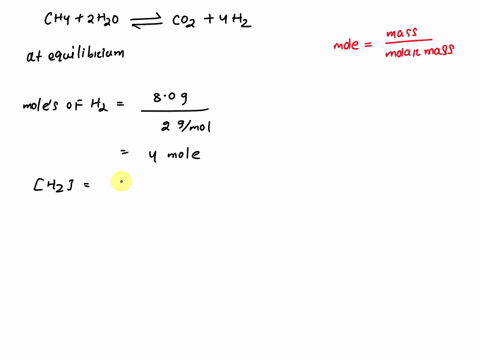 CH4 + 2H2O ⇌ CO2 + 4H2
at equilibrium
mole = mass / molar mass
mole's of H2 = 8.0 g / 2 g/mol
= 4 mole
[H2] =